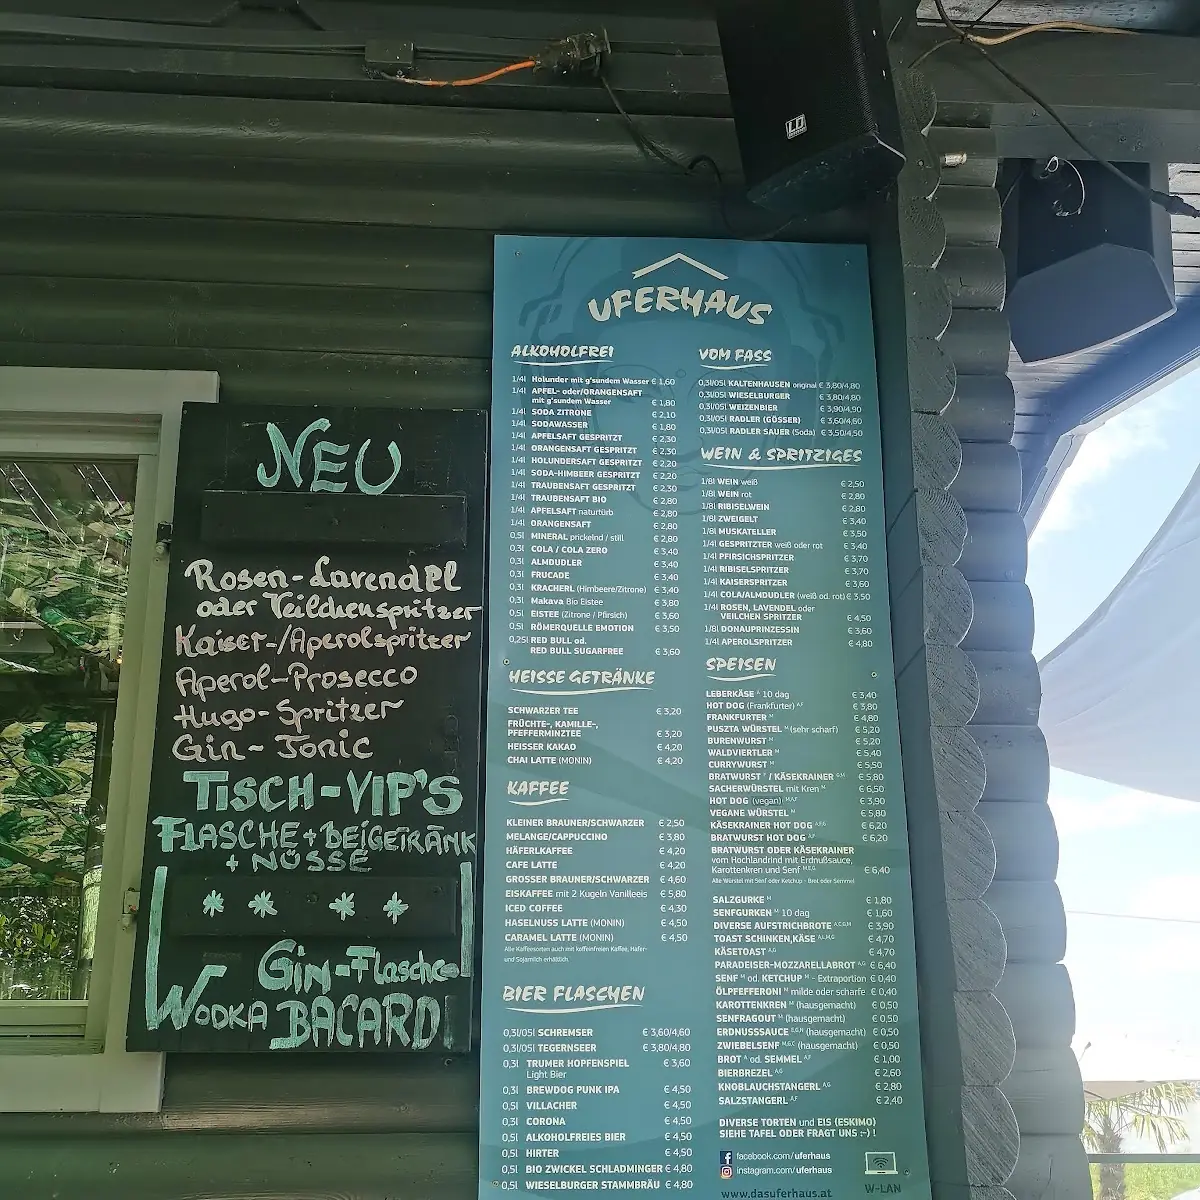 NEU
Rosen-Lavendel
oder Veilchenspritzer
Kaiser-/Aperolspritzer
Aperol-Prosecco
Hugo-Spritzer
Gin-Tonic
TISCH-VIP'S
FLASCHE + BEIGETRÄNK
+ NÜSSE
GIN-Flasche
WODKA BACARDI
UFERHAUS
ALKOHOLFREI
1/4l Holunder mit g'sundem Wasser € 1,60
1/4l APFEL- oder/ORANGENSAFT
mit g'sundem Wasser € 1,80
1/4l SODA ZITRONE € 2,10
1/4l SODAWASSER € 1,80
1/4l APFELSAFT GESPRITZT € 2,30
1/4l ORANGENSAFT GESPRITZT € 2,30
1/4l HOLUNDERSAFT GESPRITZT € 2,20
1/4l SODA-HIMBEER GESPRITZT € 2,20
1/4l TRAUBENSAFT GESPRITZT € 2,30
1/4l TRAUBENSAFT BIO € 2,80
1/4l APFELSAFT naturtürb € 2,80
1/4l ORANGENSAFT € 2,80
0,5l MINERAL prickelnd / still € 2,80
0,3l COLA / COLA ZERO € 3,40
0,3l ALMDUDLER € 3,40
0,3l FRUCADE € 3,40
0,3l KRACHERL (Himbeere/Zitrone) € 3,40
0,3l Makava Bio Eistee € 3,80
0,5l EISTEE (Zitrone / Pfirsich) € 3,60
0,5l RÖMERQUELLE EMOTION € 3,50
0,25l RED BULL od.
RED BULL SUGARFREE € 3,60
HEISSE GETRÄNKE
SCHWARZER TEE € 3,20
FRÜCHTE-, KAMILLE-,
PFEFFERMINZTEE € 3,20
HEISSER KAKAO € 4,20
CHAI LATTE (MONIN) € 4,20
KAFFEE
KLEINER BRAUNER/SCHWARZER € 2,50
MELANGE/CAPPUCCINO € 3,80
HÄFERLKAFFEE € 4,20
CAFE LATTE € 4,20
GROSSER BRAUNER/SCHWARZER € 4,60
EISKAFFEE mit 2 Kugeln Vanilleeis € 5,80
ICED COFFEE € 4,30
HASELNUSS LATTE (MONIN) € 4,50
CARAMEL LATTE (MONIN) € 4,50
Alle Kaffeesorten auch mit koffeinfreien Kaffee, Hafer-
und Sojamilch erhältlich.
BIER FLASCHEN
0,3l/05l SCHREMSER € 3,60/4,60
0,3l/05l TEGERNSEER € 3,80/4,80
0,3l TRUMER HOPFENSPIEL € 3,60
Light Bier
0,3l BREWDOG PUNK IPA € 4,50
0,5l VILLACHER € 4,50
0,3l CORONA € 4,50
0,5l ALKOHOLFREIES BIER € 4,50
0,5l HIRTER € 4,50
0,5l BIO ZWICKEL SCHLADMINGER € 4,80
0,5l WIESELBURGER STAMMBRÄU € 4,80
VOM FASS
0,3l/05l KALTENHAUSEN original € 3,80/4,80
0,3l/05l WIESELBURGER € 3,80/4,80
0,3l/05l WEIZENBIER € 3,90/4,90
0,3l/05l RADLER (GÖSSER) € 3,60/4,60
0,3l/05l RADLER SAUER (Soda) € 3,50/4,50
WEIN & SPRITZIGES
1/8l WEIN weiß € 2,50
1/8l WEIN rot € 2,80
1/8l RIBISELWEIN € 2,80
1/8l ZWEIGELT € 3,40
1/8l MUSKATELLER € 3,50
1/4l GESPRITZTER weiß oder rot € 3,40
1/4l PFIRSICHSPRITZER € 3,70
1/4l RIBISELSPRITZER € 3,70
1/4l KAISERSPRITZER € 3,60
1/4l COLA/ALMDUDLER (weiß od. rot) € 3,50
1/4l ROSEN, LAVENDEL oder
VEILCHEN SPRITZER € 4,50
1/8l DONAUPRINZESSIN € 3,60
1/4l APEROLSPRITZER € 4,80
SPEISEN
LEBERKÄSE A 10 dag € 3,40
HOT DOG (Frankfurter) A,F € 3,80
FRANKFURTER M € 4,80
PUSZTA WÜRSTEL M (sehr scharf) € 5,20
BURENWURST M € 5,20
WALDVIERTLER M € 5,40
CURRYWURST M € 5,50
BRATWURST F / KÄSEKRAINER G,M € 5,80
SACHERWÜRSTEL mit Kren M € 6,50
HOT DOG (vegan) M,A,F € 3,90
VEGANE WÜRSTEL M € 5,80
KÄSEKRAINER HOT DOG A,F,G € 6,20
BRATWURST HOT DOG A,F € 6,20
BRATWURST ODER KÄSEKRAINER
vom Hochlandrind mit Erdnußsauce,
Karottenkren und Senf M,E,G € 6,40
Alle Würstel mit Senf oder Ketchup - Brot oder Semmel
SALZGURKE M € 1,80
SENFGURKEN M 10 dag € 1,60
DIVERSE AUFSTRICHBROTE A,C,G,M € 3,90
TOAST SCHINKEN,KÄSE A,L,M,G € 4,70
KÄSETOAST A,G € 4,70
PARADEISER-MOZZARELLABROT A,G € 6,40
SENF M od. KETCHUP M - Extraportion € 0,40
ÖLPFEFFERONI M milde oder scharfe € 0,40
KAROTTENKREN M (hausgemacht) € 0,50
SENFRAGOUT M (hausgemacht) € 0,50
ERDNUSSSAUCE E,G,H (hausgemacht) € 0,50
ZWIEBELSENF M,G,C (hausgemacht) € 0,50
BROT A od. SEMMEL A,F € 1,00
BIERBREZEL A,G € 2,60
KNOBLAUCHSTANGERL A,G € 2,80
SALZSTANGERL A,F € 2,40
DIVERSE TORTEN und EIS (ESKIMO)
SIEHE TAFEL ODER FRAGT UNS :-) !
facebook.com/uferhaus
instagram.com/uferhaus
W-LAN
www.dasuferhaus.at
LD